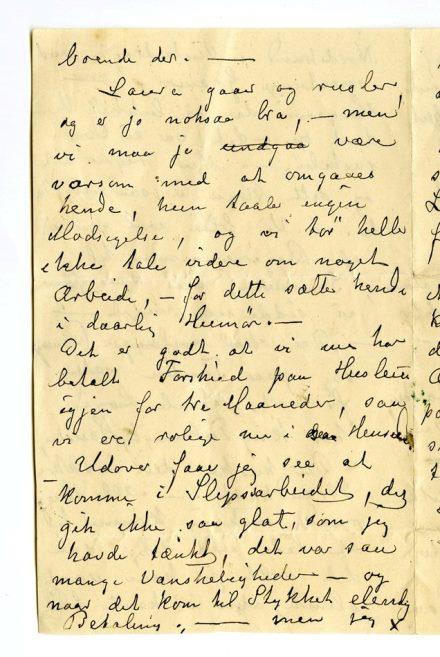 boende der. —
Laura gaar og rusler,
og er jo noksaa bra, — men
vi maa jo undgaa være
varsom med at omgaaes
hende, hun taaler ingen
Modsigelse, og vi tör heller
ikke tale videre om noget
Arbeide, — for dette sætter hende
i daarlig Humör. —
Det er godt at vi nu har
betalt Forskud paa Husleien
igjen for tre Maaneder, saa
vi er rolige nu i den Henseen.
Udover faar jeg see at
komme i Slipsarbeidet, det
gik ikke saa glat, som jeg
havde tænkt, det var saa
mange Vanskeligheder — og
naar det kom til Stykket elendig
Betaling. — men jeg x